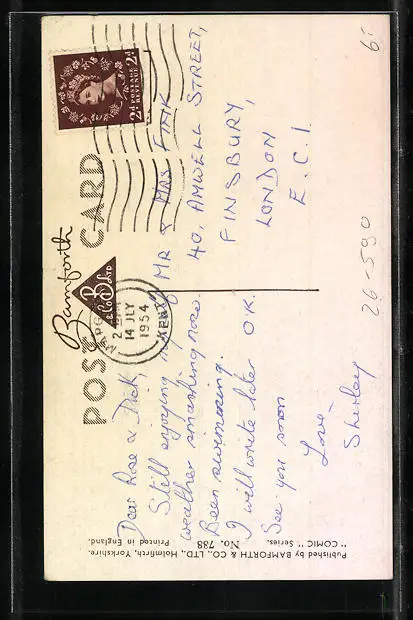 Published by BAMFORTH & CO., LTD., Holmfirth, Yorkshire.
"COMIC" Series. No. 788 Printed in England.
POST CARD
Bamforth
B
& Co Ltd
MARG
2
14 JLY
1954
KENT
2D POSTAGE REVENUE 2D
Dear Rose & Dick,
Still enjoying
weather smashing now.
Been swimming.
I will write later O.K.
See you soon
Love
Shirley
MR & MRS FINK
40, AMWELL STREET,
FINSBURY,
LONDON
E.C.1.
6.
26-590